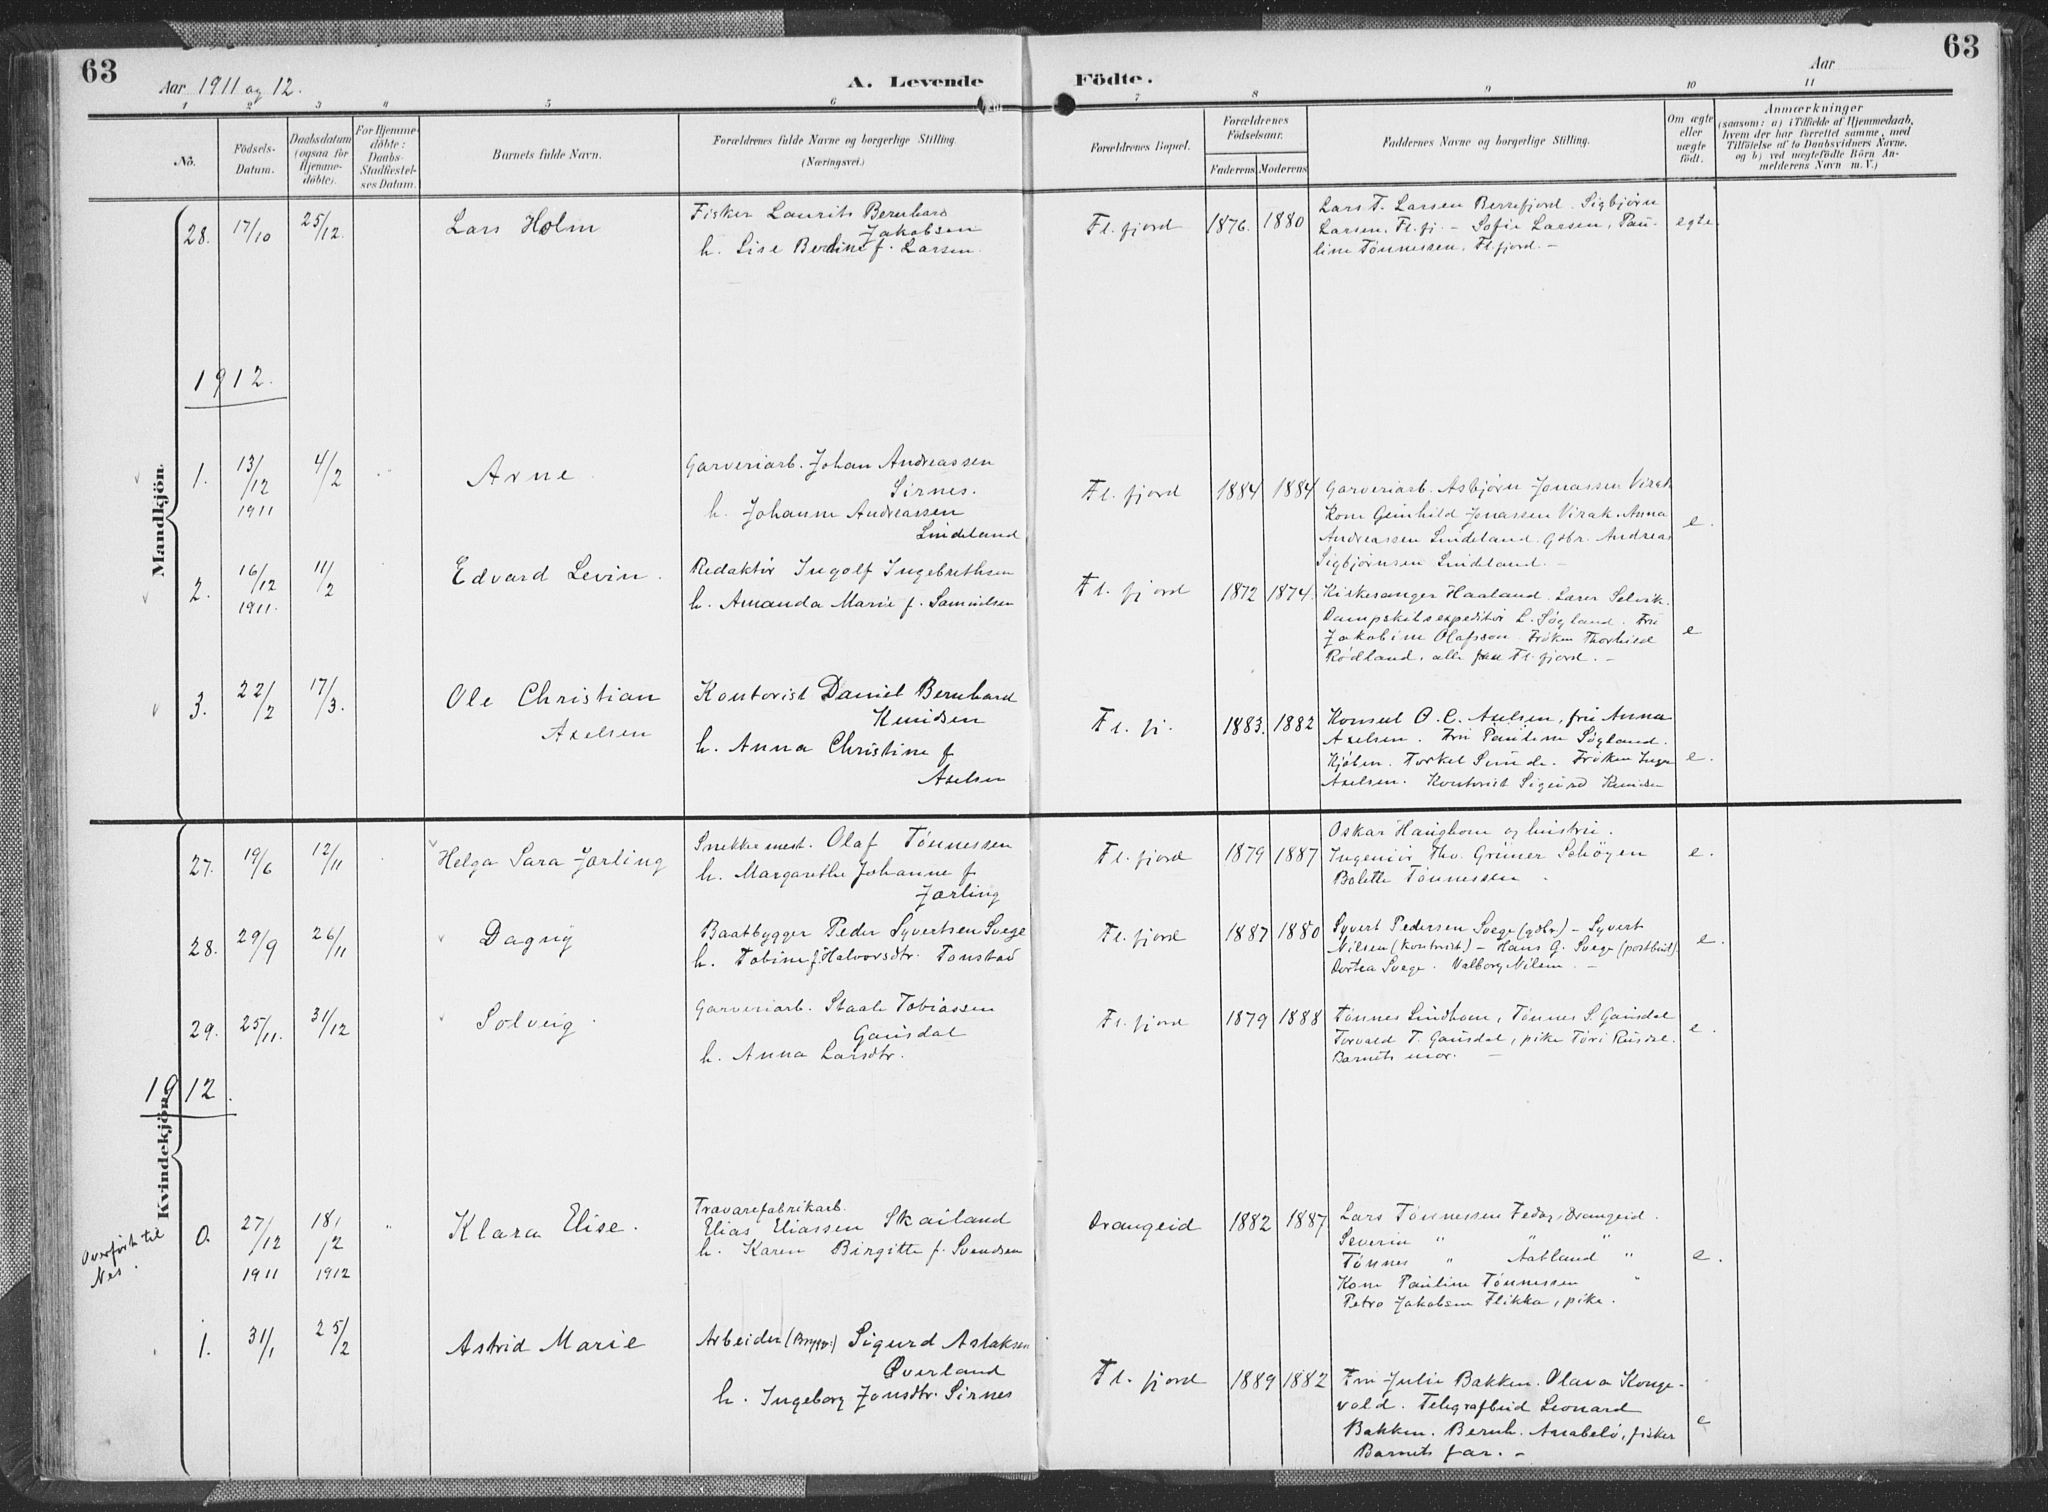 63
63
Aar 1911 og 12.
A. Levende
Födte.
Aar
1 2 3 4 5 6 7 8 9 10 11
No.
Födsels-
Datum.
Daabsdatum
(ogsaa for
Hjemme-
döbte).
For Hjemme-
döbte:
Daabs-
Stadfæstel-
ses Datum.
Barnets fulde Navn.
Forældrenes fulde Navne og borgerlige Stilling
(Næringsvei.)
Forældrenes Bopæl.
Forældrenes
Födselsaar.
Faderens Moderens
Faddernes Navne og borgerlige Stilling.
Om ægte
eller
uægte
födt.
Anmærkninger
(saasom: a) i Tilfælde af Hjemmedaab,
hvem der har forrettet samme, med
Tilföielse af to Daabsvidners Navne.
og b) ved uægtefödte Börn An-
melderens Navn m. V.)
Mandkjön.
28. 17/10 25/12. Lars Holm
Fisker Laurits Bernhard
Jakobsen
h. Lise Berdine f. Larsen.
Fl. fjord 1876. 1880
Lars T. Larsen Berrefjord. Sigbjørn
Larsen, Fl. fj. – Sofie Larsen, Pau-
line Tønnessen, Fl fjord. –
egte.
1912.
1. 13/12 1911 4/2 Arne
Garveriarb. Johan Andreassen
Sirnes.
h. Johanne Andreassen
Lindeland
Fl. fjord 1884 1884
Garveriarb. Asbjørn Jonassen Virak
Kone Gunhild Jonassen Virak. Anna
Andreassen Lindeland. Gbr. Andreas
Sigbjørnsen Lindeland. –
e.
2. 16/12 1911. 11/2 Edvard Levin.
Redaktør Ingolf Ingebrethsen
h. Amanda Marie f. Samuelsen
Fl. fjord 1872 1874.
Kirkesanger Haaland. Lærer Selvik.
Dampskibsexpeditør L. Søgland. Fru
Jakobine Olafsson. Frøken Thorhild
Rødland, alle fra Fl. fjord. –
e
3. 22/2 17/3. Ole Christian
Axelsen
Kontorist Daniel Bernhard
Knudsen
h. Anna Christine f
Axelsen
Fl. fj. 1883. 1882
Konsul O. C. Axelsen, fru Anna
Axelsen. Fru Pauline Søgland.
Kjøbm. Torkel Sunde. Frøken Inga
Axelsen. Kontorist Sigurd Knudsen
e.
Kvindekjön
27. 19/6 12/11 Helga Sara Jærling
Snekkermest. Olaf Tønnessen
h. Margarethe Johanne f
Jærling
Fl. fjord 1879 1887
Oskar Haughom og hustru.
Ingeniør Thv. Grüner Schøyen
Bolette Tønnessen.
e.
28. 29/9 26/11 Dagny
Baatbygger Peder Syvertsen Svege
h. Tobine f. Halvorsdtr. Tonstad
Fl. fjord 1887 1880
Syvert Pedersen Svege (gdbr.) – Syvert
Nilsen (kontorist) – Hans G. Svege (postbud).
Dortea Svege. Valborg Nilsen. –
e.
29. 25/11. 31/12 Solveig.
Garveriarb. Staale Tobiassen
Gausdal
h. Anna Larsdtr.
Fl. fjord 1879 1888
Tønnes Lindhom, Tønnes S. Gausdal
Torvald T. Gausdal, pike Tori Rusdal.
Barnets mor. –
e.
1912.
Overført til
Nes.
0. 27/12 1911 18/2 1912 Klara Elise.
Trævarefabrikarb.
Elias Eliassen Skailand
h. Karen Birgitte f. Svendsen
Drangeid 1882 1887
Lars Tønnessen Fedog, Drangeid.
Severin " " "
Tønnes " Aatland "
Kone Pauline Tønnessen "
Petra Jakobsen Flikka, pike.
e.
1. 31/1 25/2 Astrid Marie
Arbeider (Brygge.) Sigurd Aslaksen
Øverland
h. Ingeborg Jonsdtr. Sirnes
Fl. fjord 1889 1882
Fru Julie Bakken. Olava Konge-
vold. Telegrafbud Leonard
Bakken. Bernh. Anabelø, fisker
Barnets far. –
e